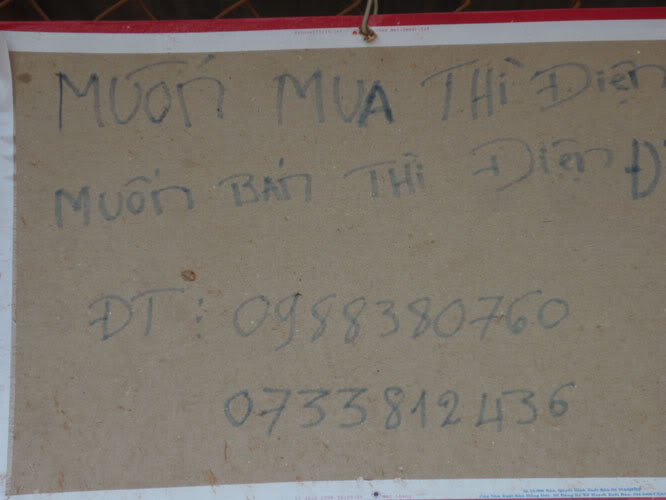 MUỐN MUA THÌ Điện
MUỐN BÁN THÌ Điện
ĐT : 0988380760
0733812436